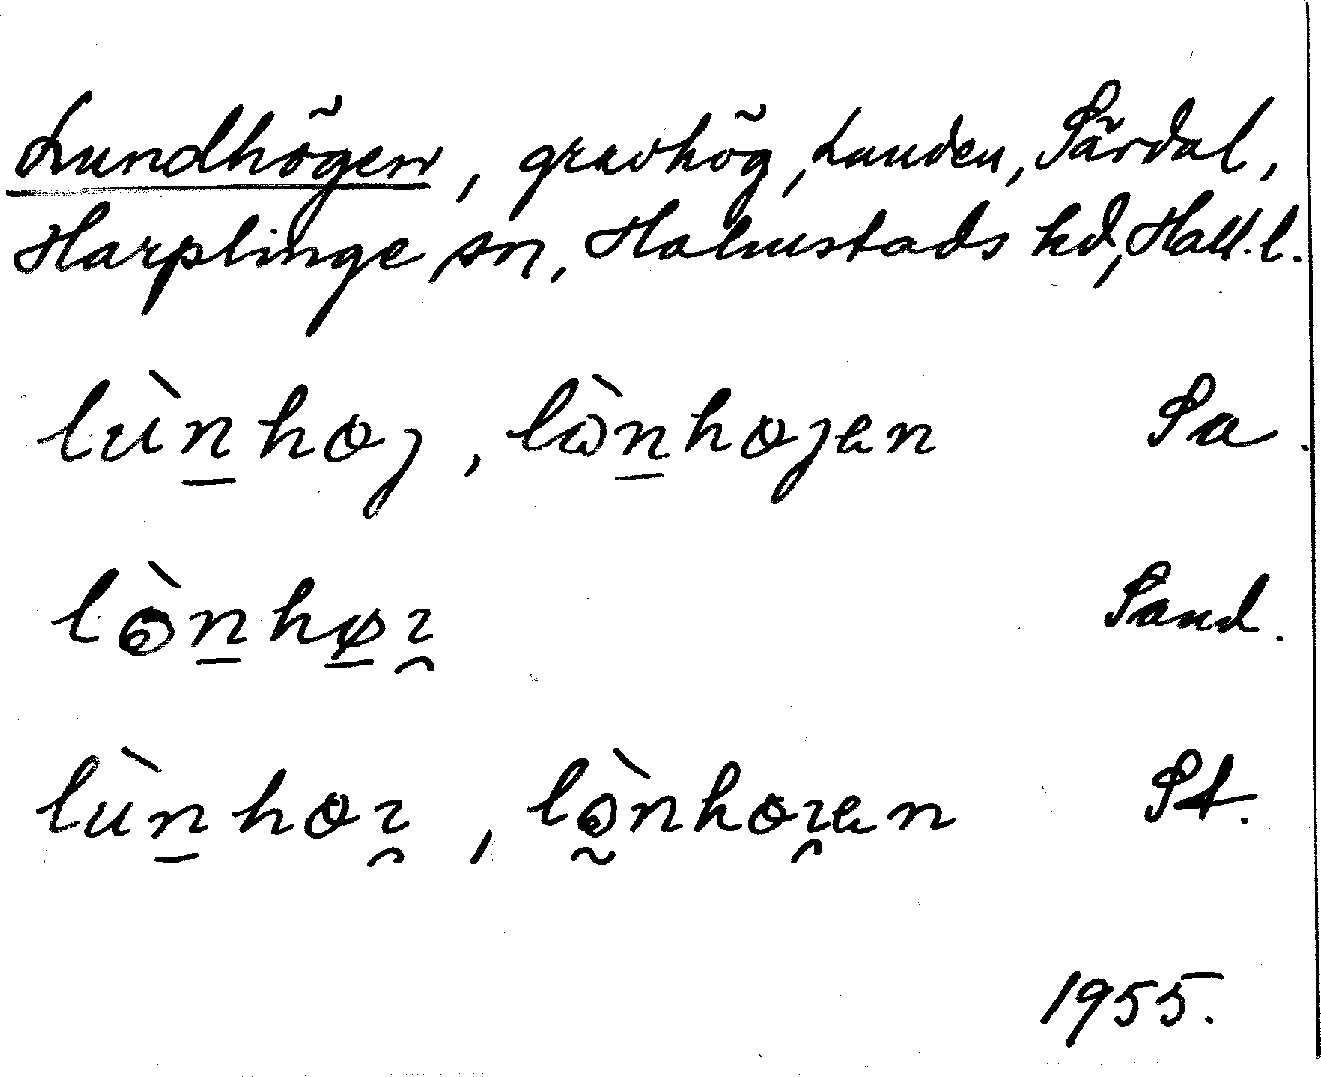 Lundhögen, gravhög, Lunden, Särdal,
Harplinge sn, Halmstads hd, Hall. l.
lùn̠hoȷ, lòn̠hoȷen Sa.
lòn̠hø̠ı̯ Sand.
lùn̠hoı̯, lò̰nhoı̯en St.
1955.